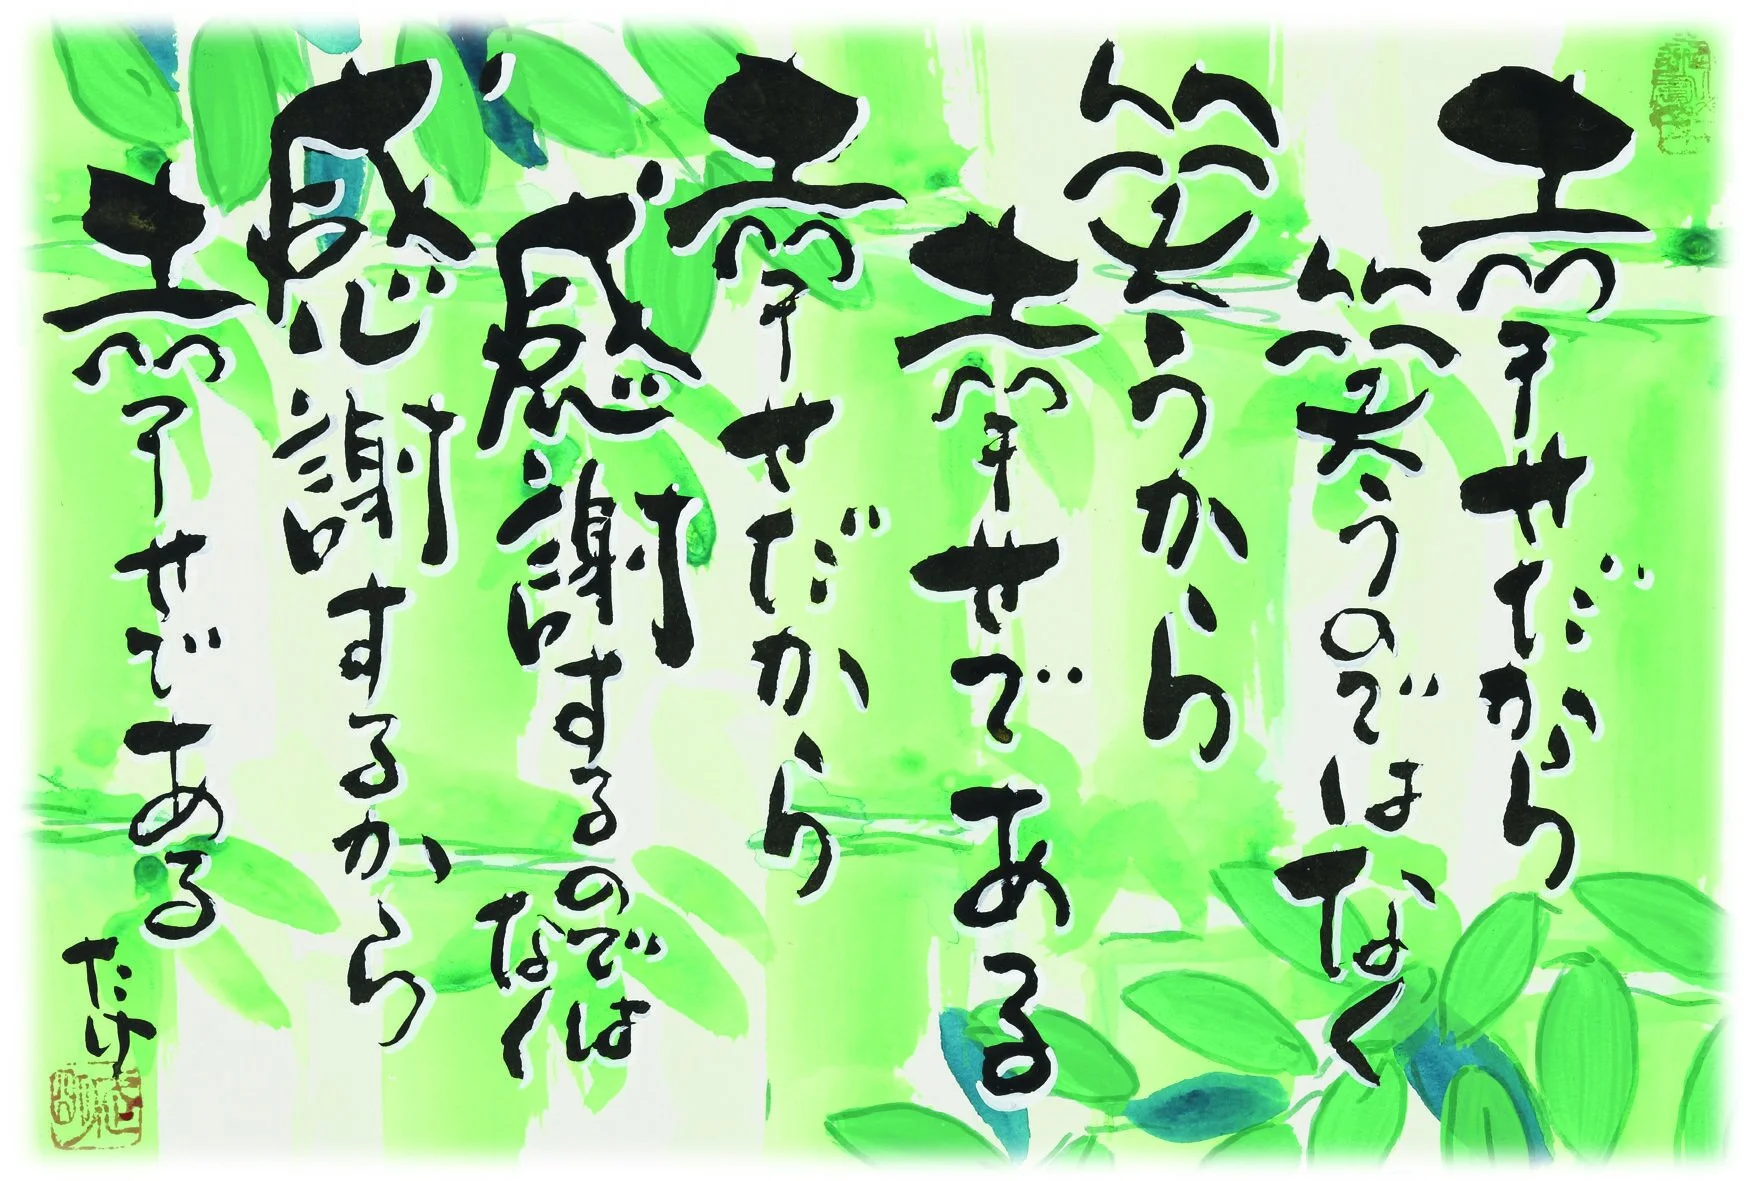 幸せだから
笑うのではなく
笑うから
幸せである
幸せだから
感謝するのでは
なく
感謝するから
幸せである
たけ